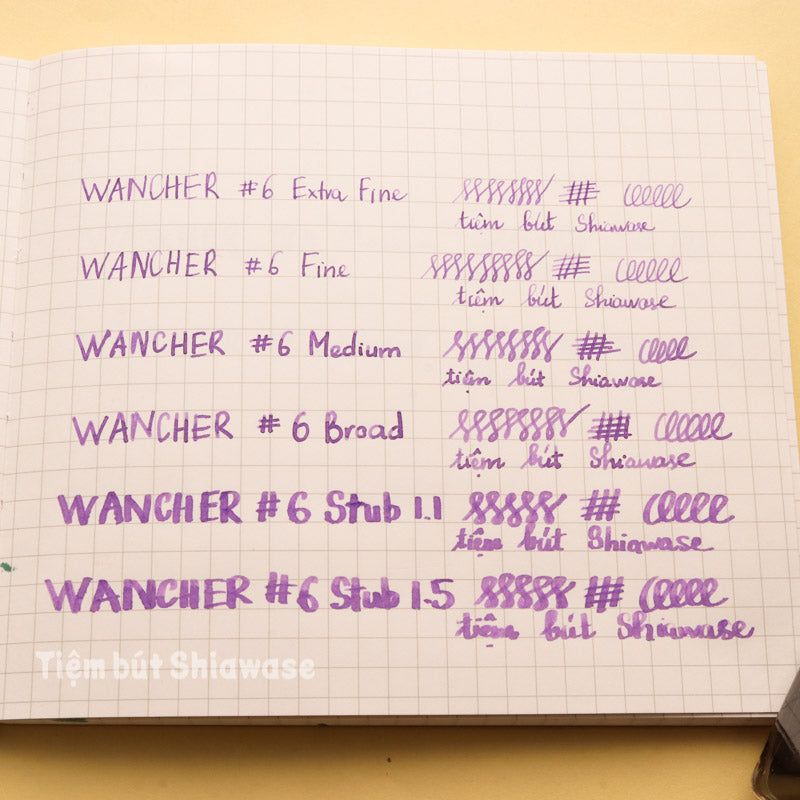 WANCHER #6 Extra Fine
tiệm bút Shiawase
WANCHER #6 Fine
tiệm bút Shiawase
WANCHER #6 Medium
tiệm bút Shiawase
WANCHER #6 Broad
tiệm bút Shiawase
WANCHER #6 Stub 1.1
tiệm bút Shiawase
WANCHER #6 Stub 1.5
tiệm bút Shiawase
Tiệm bút Shiawase